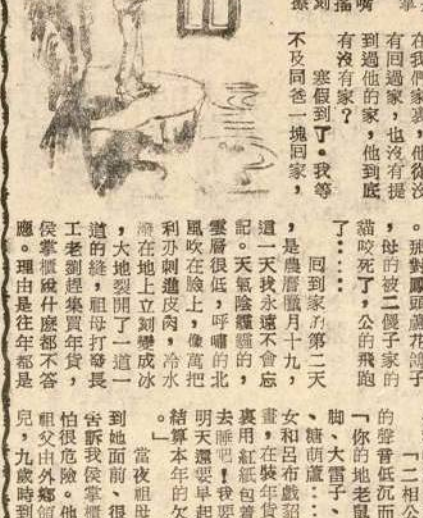 嘴
搖
刻
擦
在我們家裏，他從沒
有回過家，也沒有提
到過他的家，他到底
有沒有家？
寒假到了。我等
不及同爸一塊回家，
對鳳頭蘆花鴿子
，母的被二傻子家的
貓咬死了，公的飛跑
了……
回到家的第二天
，是農曆臘月十九，
這一天我永遠不會忘
記。天氣陰霾霾的，
雲層很低，呼嘯的北
風吹在臉上，像萬把
利刃刺進皮肉，冷水
潑在地上立刻變成冰
，大地裂開了一道一
道的縫，祖母打發長
工老劉趕集買年貨，
侯掌櫃說什麼都不答
應。理由是往年都是
「二相公
的聲音低沉而
「你的地老鼠
脚、大雷子、
、糖葫蘆……
女和呂布戲貂
畫，在裝年貨
裏用紅紙包着
去睡吧！我要
明天還要早起
結算本年的欠
。」
當夜祖母
到她面前、很
告訴我侯掌櫃
怕很危險。他
祖父由外鄉領
兒，九歲時到